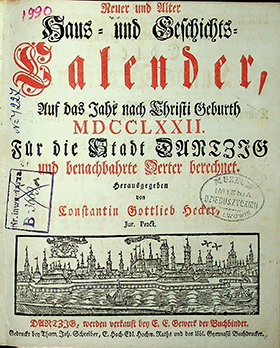 1990
Neuer und Alter
Haus- und Geschichts-
Calender,
Auf das Jahr nach Christi Geburth
MDCCLXXII.
Für die Stadt DANTZIG
und benachbahrte Oerter berechnet.
Herausgegeben
von
Constantin Gottlieb Hecker,
Jur. Pract.
MUZEUM
DZIEDUSZYCKICH
LWOWIE
DANTZIG, werden verkauft bey E. E. Gewerk der Buchbinder.
Gedruckt bey Thom. Joh. Schreiber, E. Hoch-Edl. Hochw. Raths und des löbl. Gymnasii Buchdrucker.